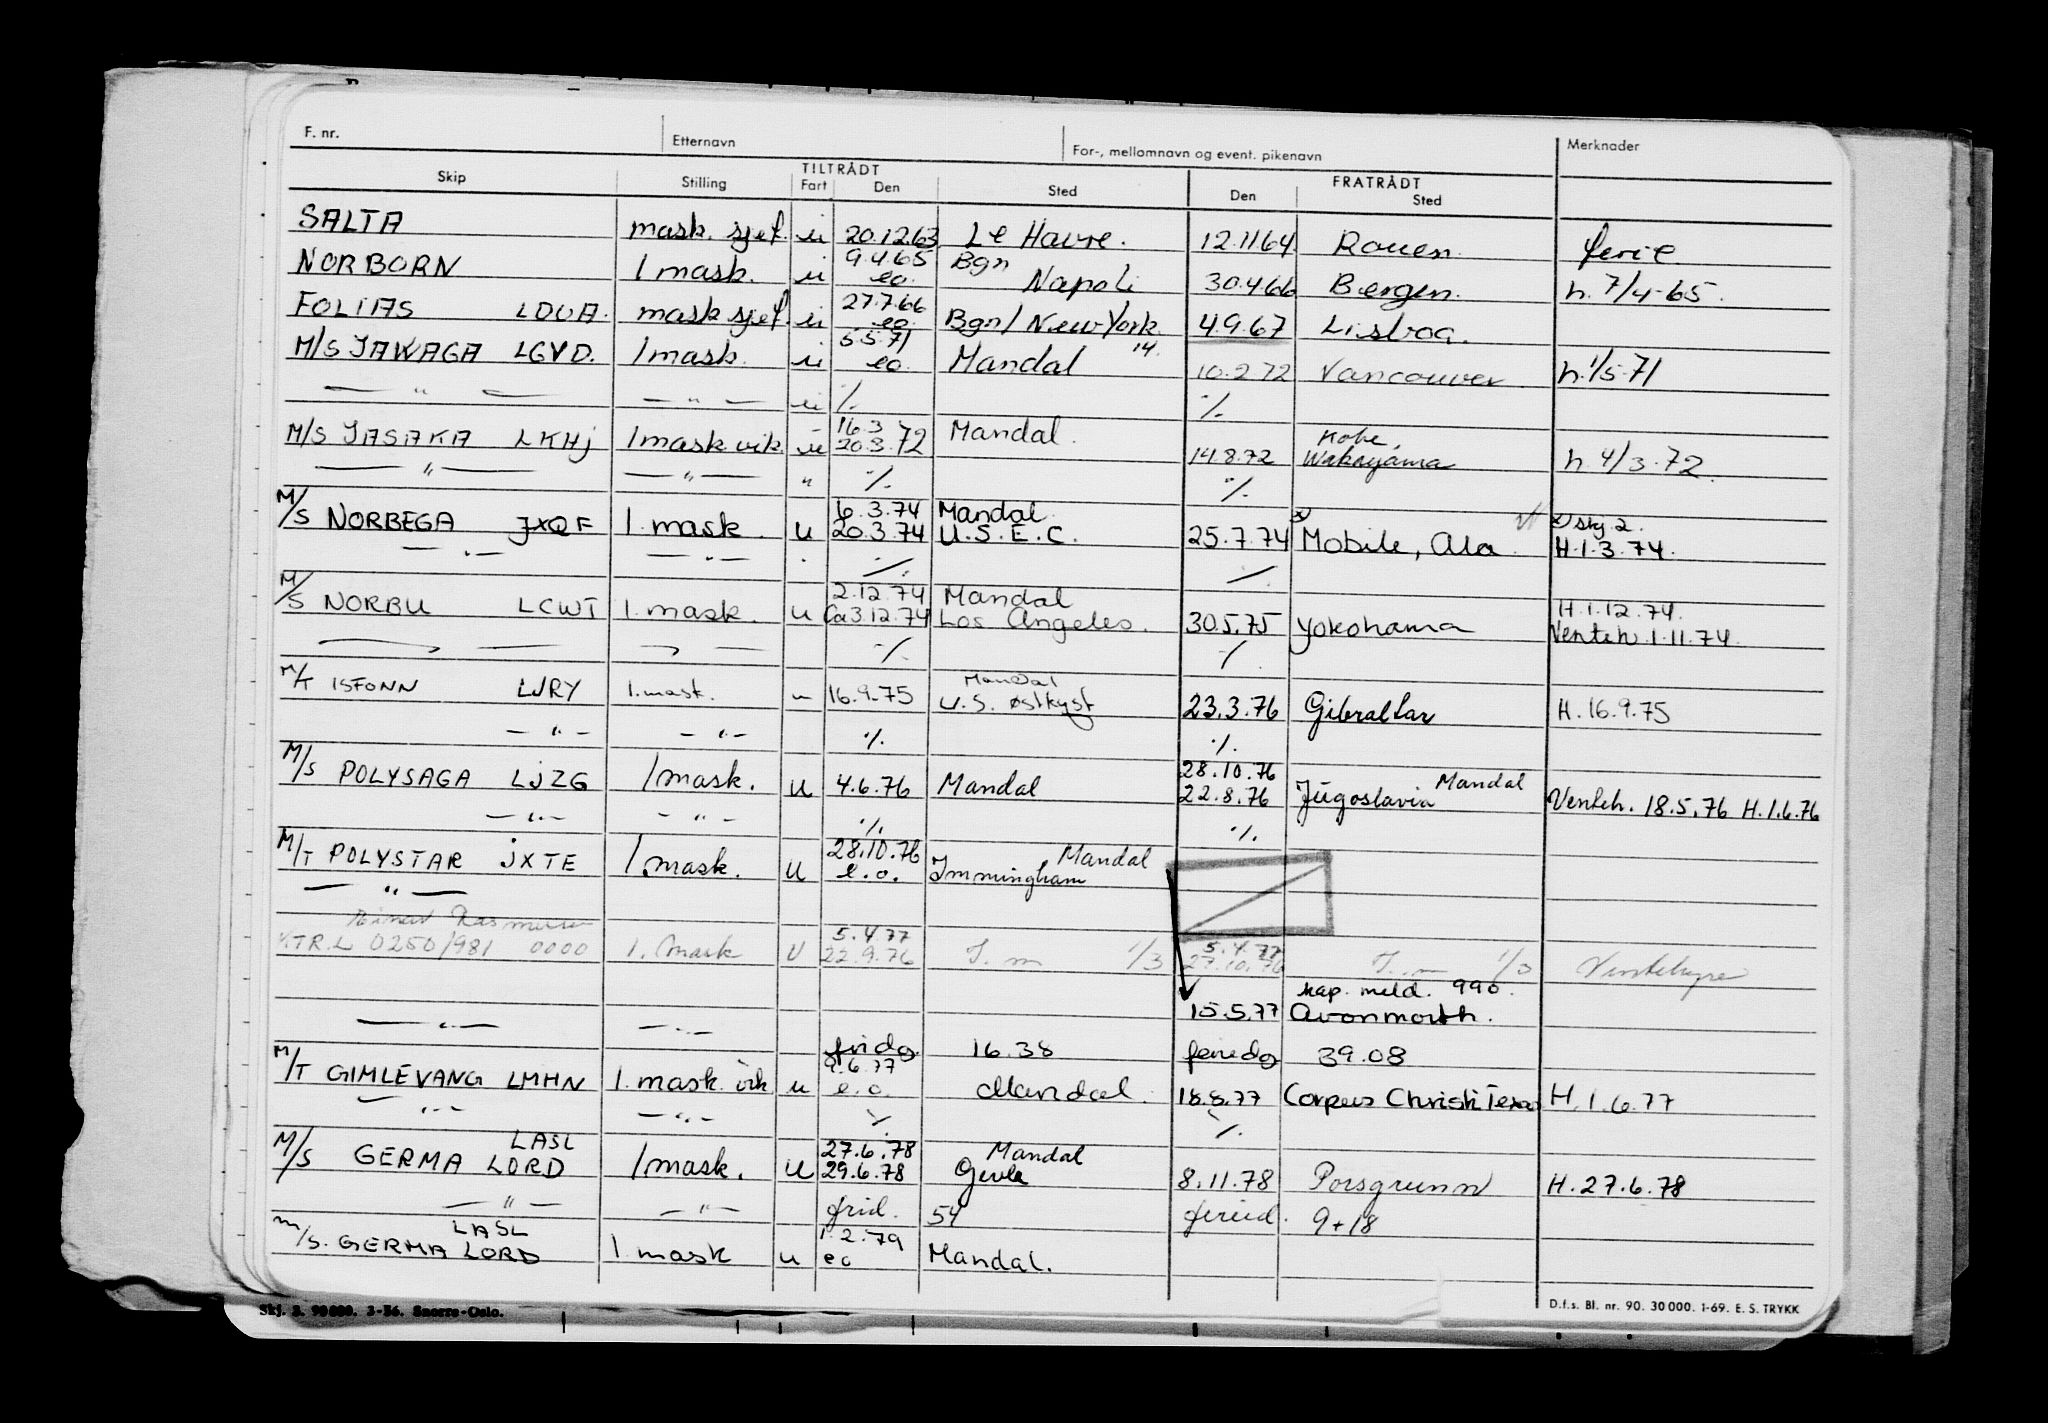 F. nr. Etternavn For-, mellomnavn og event. pikenavn Merknader
TILTRÅDT FRATRÅDT
Skip Stilling Fart Den Sted Den Sted
SALTA mask. sjef. u 20.12.63 Le Havre. 12.11.64 Rouen ferie
9.4.65 Bgn
NORBORN 1 mask. u eo. Napoli 30.4.66 Bergen. h. 7/4-65.
27.7.66
FOLIAS LDUA. mask sjef. u eo. Bgn/ New York 4.9.67 Lisboa.
5.5.71 14.
M/S JAWAGA LGVD. 1mask. u eo. Mandal 10.2.72 Vancouver h. 1/5-71
— " — — " — u ·/. ·/.
16.3 Mandal. Kobe,
M/S JASAKA LKHJ 1mask vik. u 20.3.72 14.8.72 Wakayama h. 4/3.72.
— " — — " — " ·/. ·/.
16.3.74 Mandal. x) skj 2.
M/S NORBEGA JXQF 1. mask. u 20.3.74 U.S.E.C. 25.7.74 Mobile, Ala. H.1.3.74.
— " — — " — ·/. ·/.
2.12.74 Mandal H.1.12.74.
M/S NORBU LCWT 1. mask. u Ca 3.12.74 Los Angeles. 30.5.75 Yokohama Venteh. 1.11.74.
·/. ·/.
Mandal
M/T ISFONN LJRY 1. mask. u 16.9.75 U.S. østkyst 23.3.76 Gibraltar H. 16.9.75
— " — — " — ·/. ·/.
28.10.76 Mandal
M/S POLYSAGA LJZG 1mask. u 4.6.76 Mandal 22.8.76 Jugoslavia Venteh. 18.5.76 H.1.6.76
— " — — " — ·/. ·/.
28.10.76 Mandal
M/T POLYSTAR JXTE 1.mask. u e.o. Immingham
— " —
Einar Rasmussen 5.4.77 5.4.77
KTR.L 0250/981 0000 1. Mask U 22.9.76 1/3 27.10.76 1/3 Ventehyre
kap. meld. 990.
15.5.77 Avonmouth.
— " — — " —
frida 16.38 feireda 39.08
9.6.77
M/T GIMLEVANG LMHN 1. mask. vik u e.o. Mandal. 18.8.77 Corpus Christi Texas H. 1.6.77
— " — — " — ·/. ·/.
LASL 27.6.78 Mandal
M/S GERMA LORD 1mask. u 29.6.78 Gevle 8.11.78 Porsgrunn H. 27.6.78
— " — — " — frid. 54 feried. 9+18
LASL 1.2.79
M/S. GERMA LORD 1. mask u eo Mandal.
Skj. 3. 90000. 3-56. Snorre-Oslo. D.f.s. Bl. nr. 90. 30000. 1-69. E. S. TRYKK